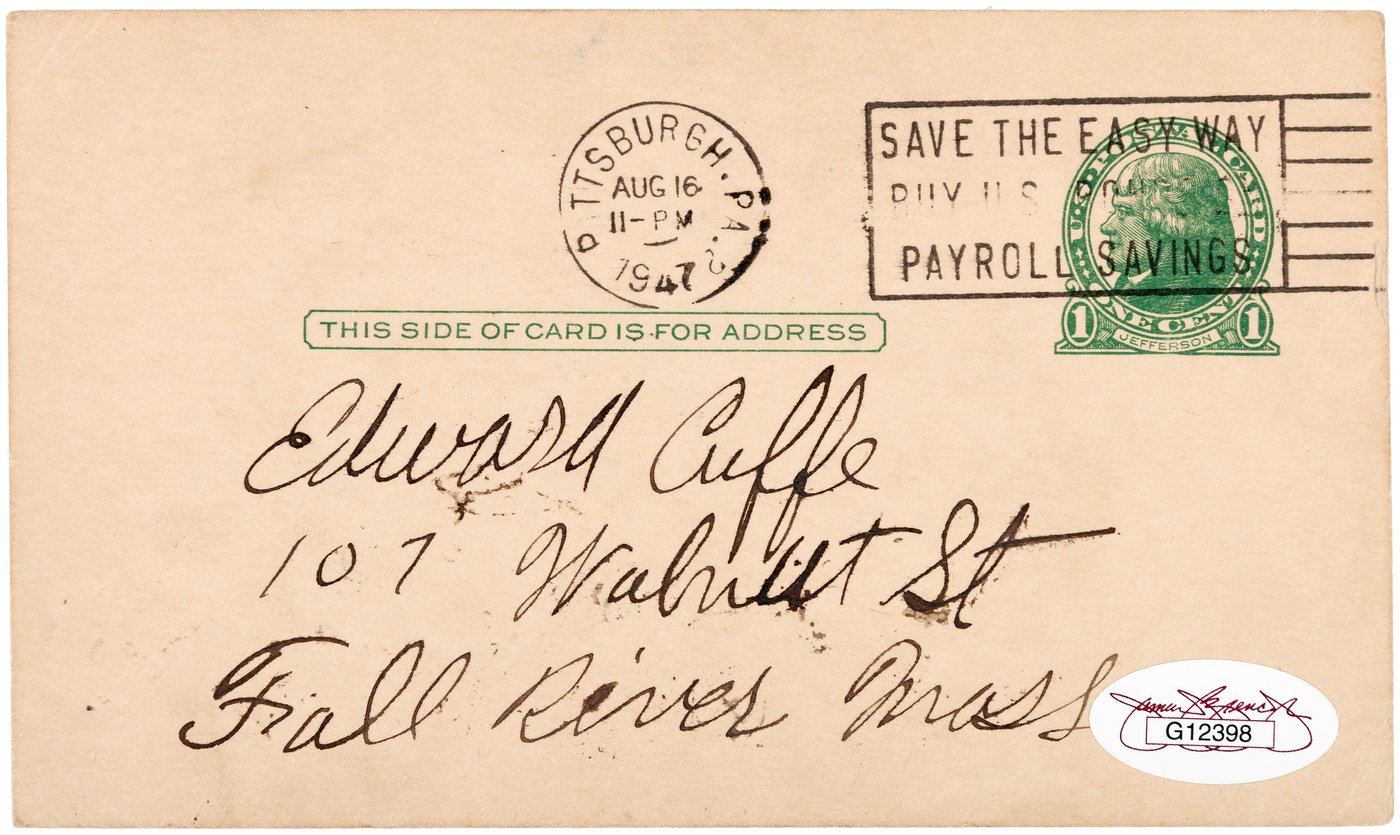 PITTSBURGH, PA. 2
AUG 16
11-PM
1947
SAVE THE EASY WAY
BUY U.S.
PAYROLL SAVINGS
U.S. POSTAL CARD
1 ONE CENT 1
JEFFERSON
THIS SIDE OF CARD IS FOR ADDRESS
Edward Cuffe
107 Walnut St
Fall River Mass
James Spence Jr
G12398